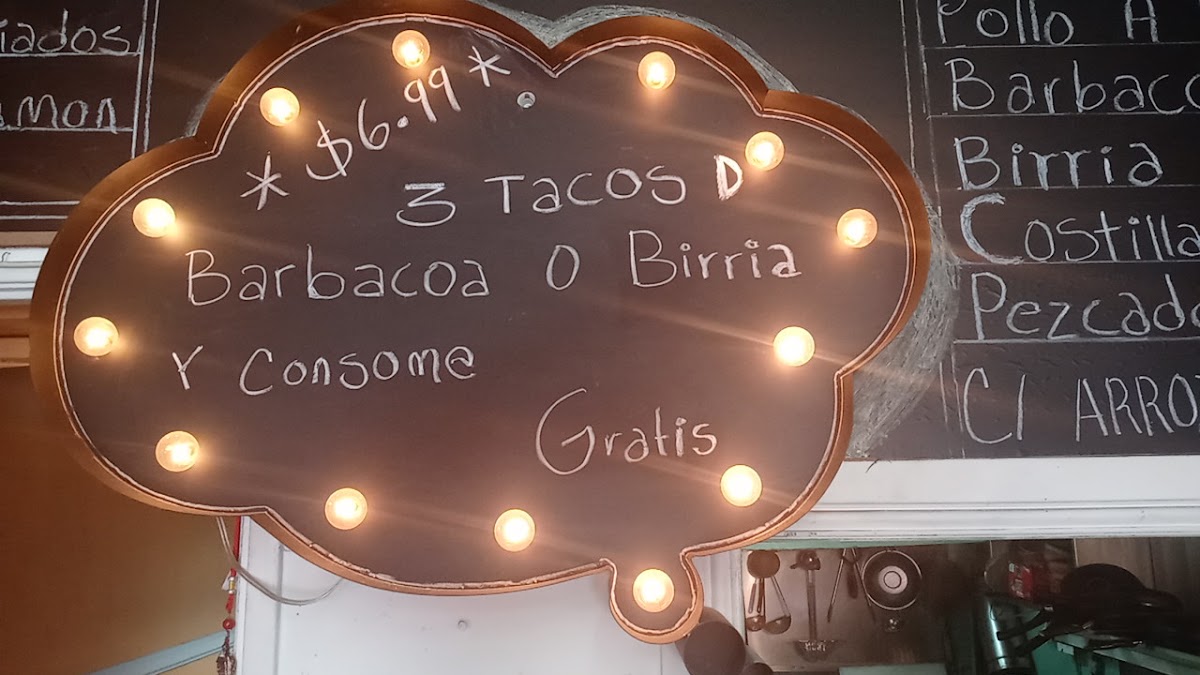 *$6.99*.
3 Tacos D
Barbacoa O Birria
Y Consome
Gratis
Pollo A
Barbaco
Birria
Costilla
Pezcado
C/ ARRO
iados
amon